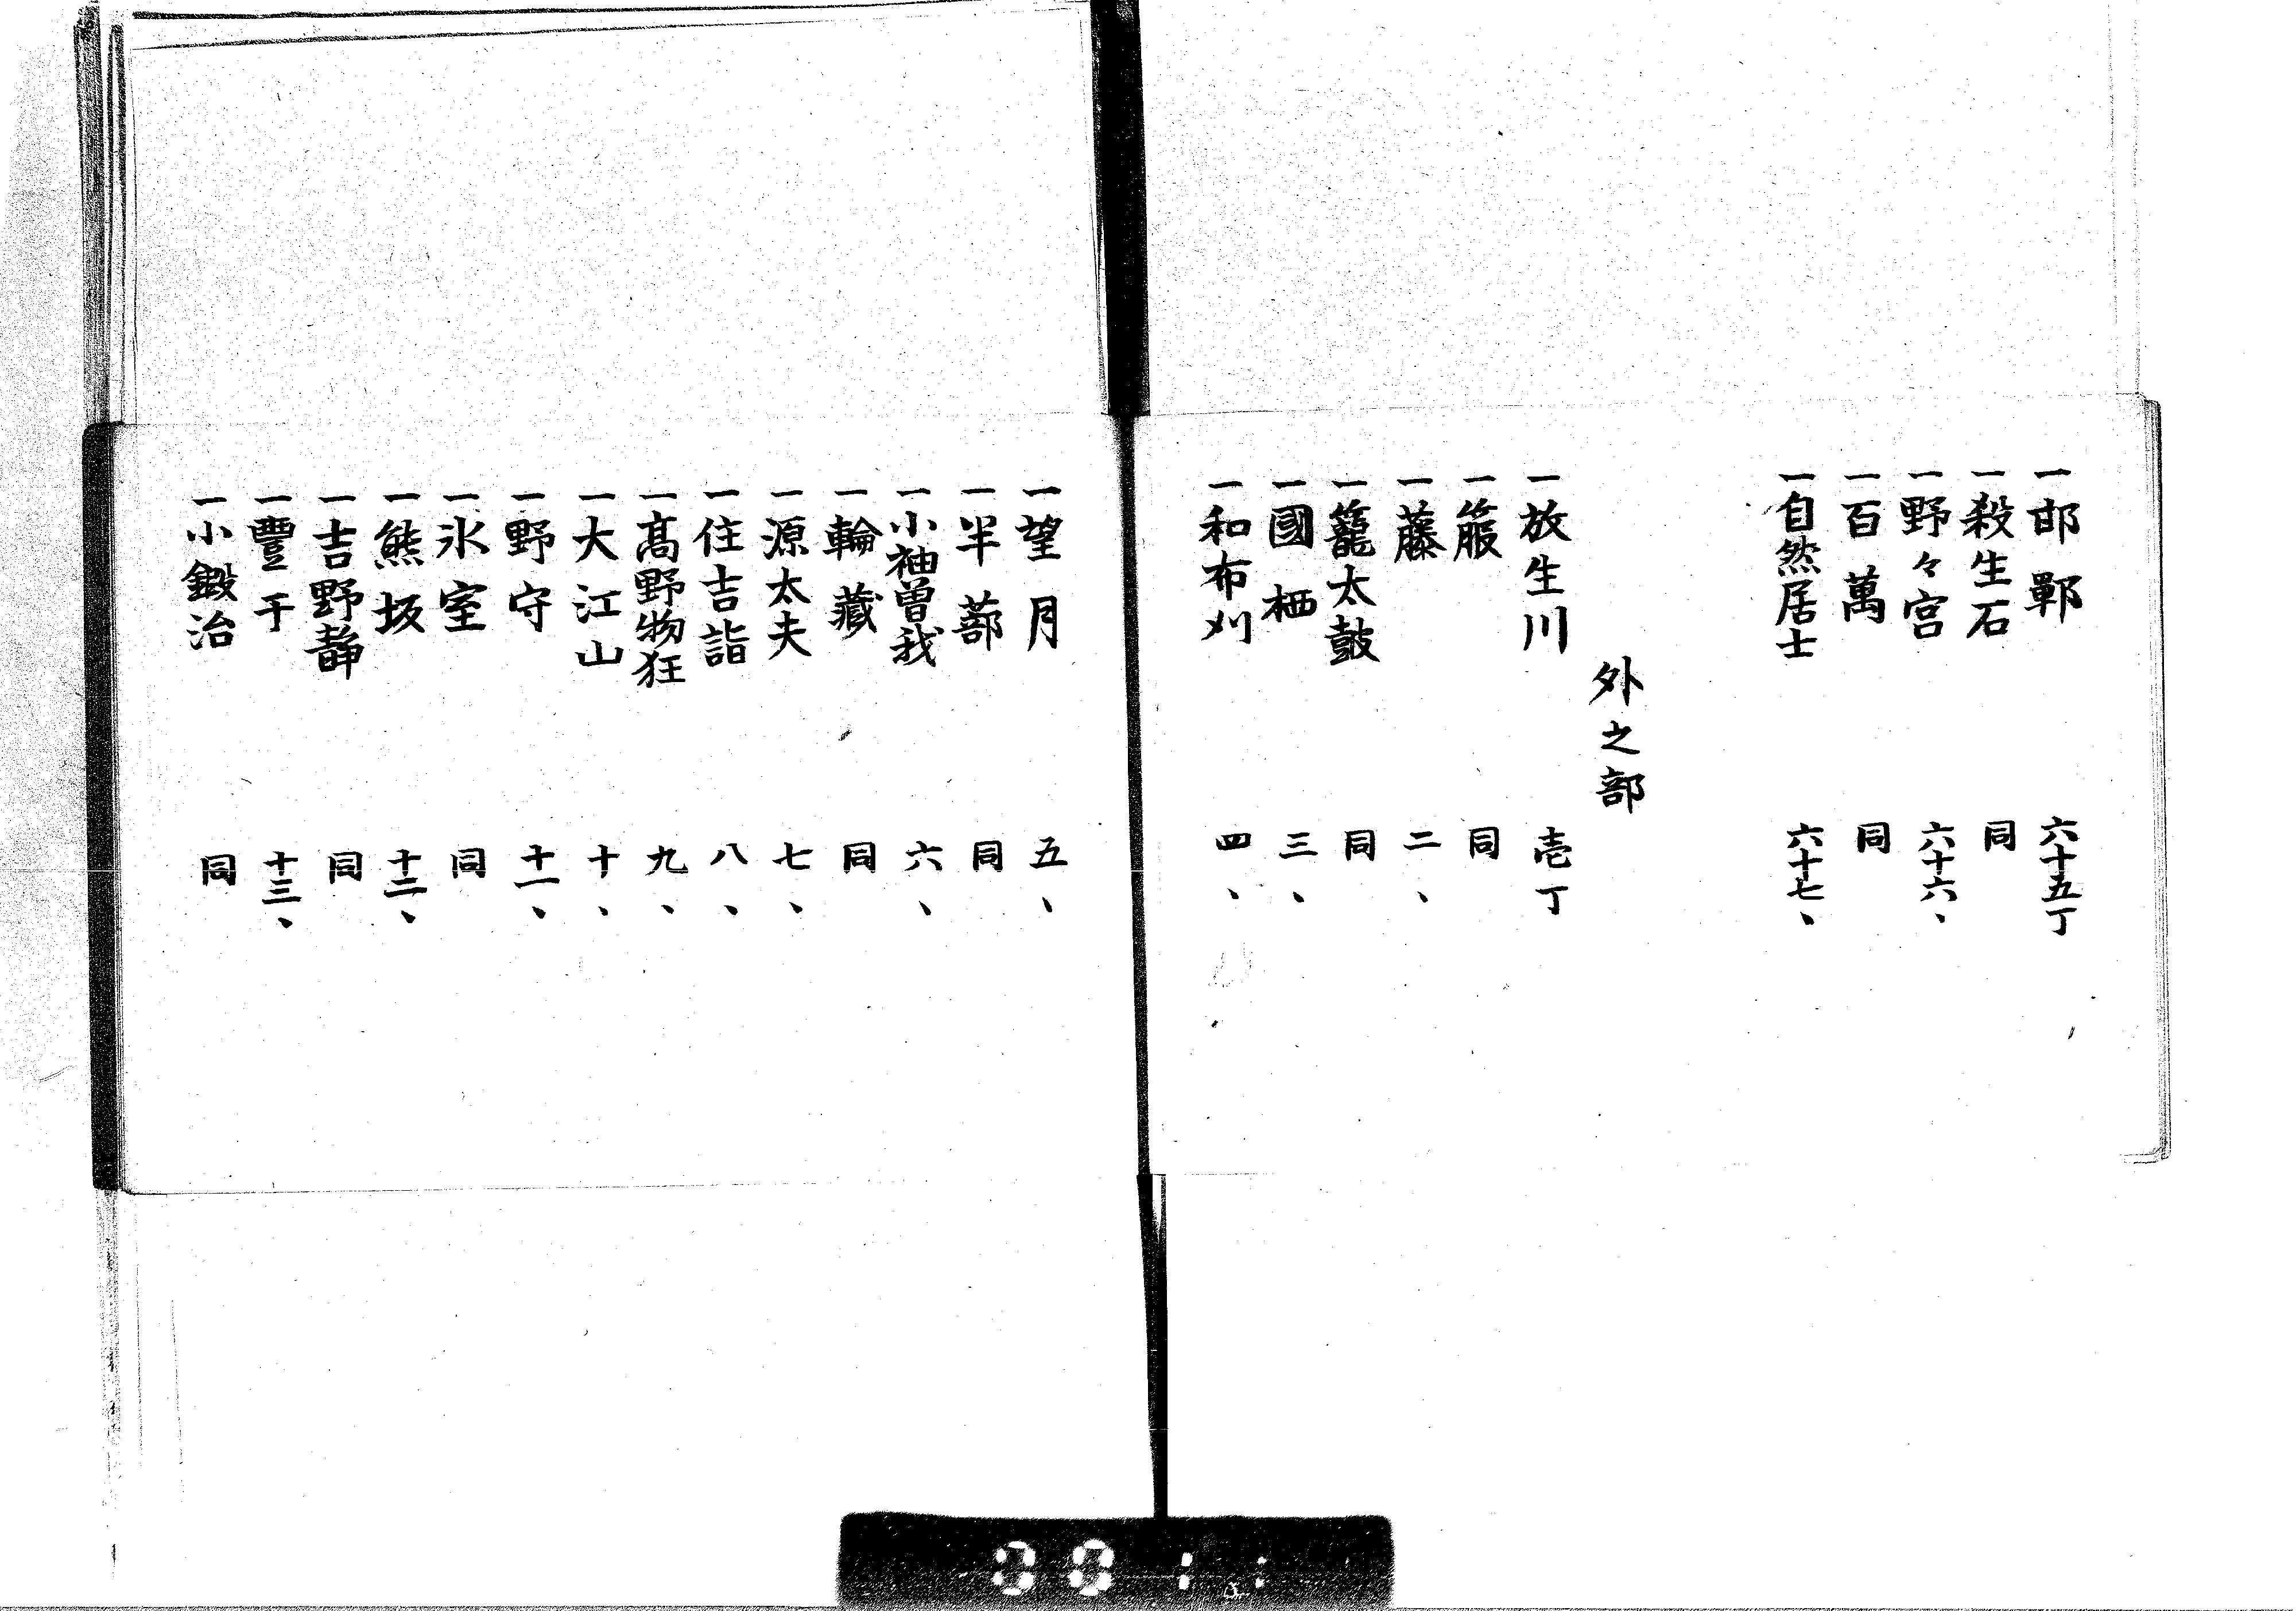 一邯鄲 六十五丁
一殺生石 同
一野々宮 六十六、
一百萬 同
一自然居士 六十七、
外之部
一放生川 壱丁
一箙 同
一藤 二、
一籠太鼓 同
一國栖 三、
一和布刈 四、
一望月 五、
一半蔀 同
一小袖曽我 六、
一輪藏 同
一源太夫 七、
一住吉詣 八、
一髙野物狂 九、
一大江山 十、
一野守 十一、
一氷室 同
一熊坂 十二、
一吉野静 同
一豐干 十三、
一小鍛冶 同